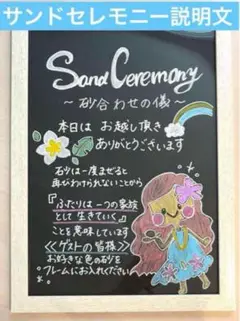 サンドセレモニー説明文
Sand Ceremony
～砂合わせの儀～
本日は お越し頂き
ありがとうございます
砂は一度まぜると
再びわけられないことから
『ふたりは一つの家族
として生きていく』
ことを意味しています
≪ゲストの皆様≫
お好きな色の砂を
フレームにお入れください